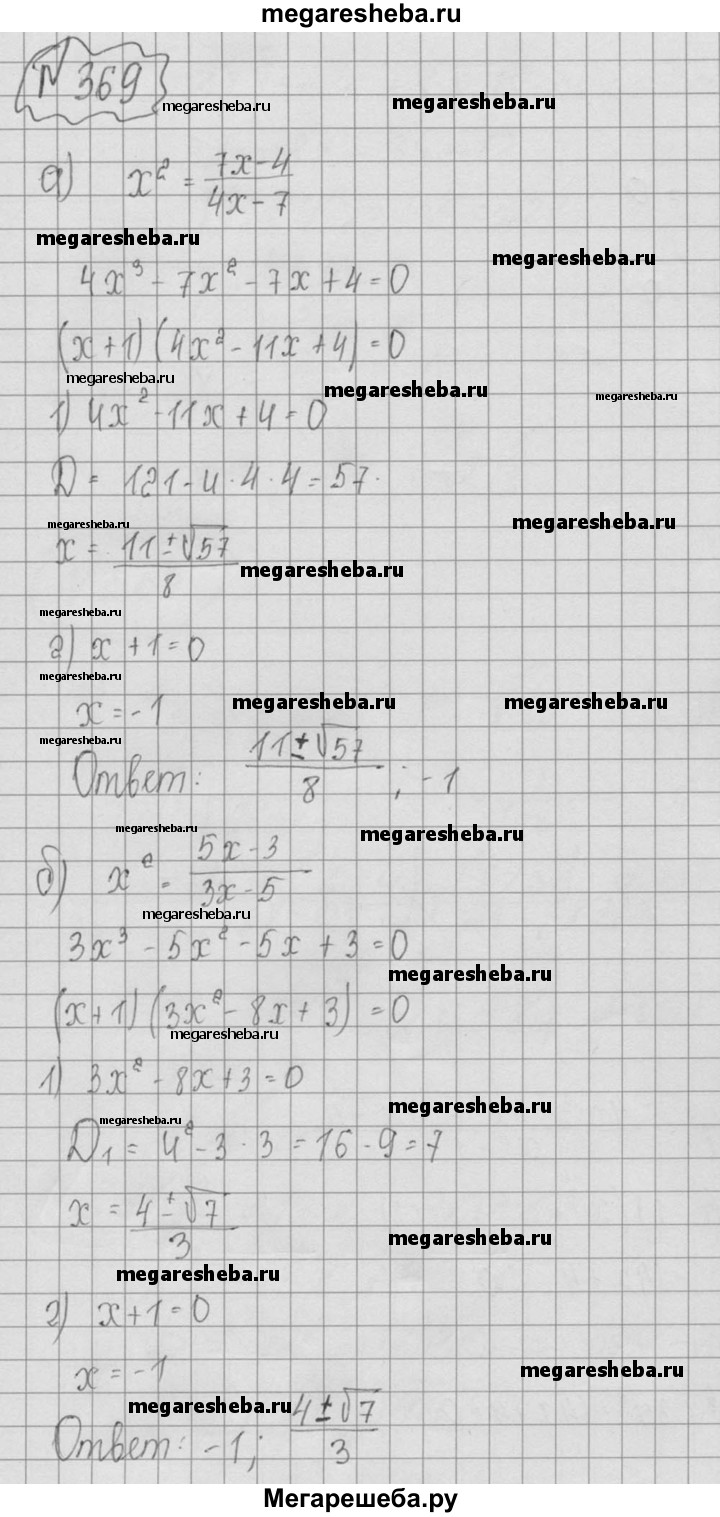 megaresheba.ru
№ 369
megaresheba.ru
megaresheba.ru
а) x² = (7x-4)/(4x-7)
megaresheba.ru
megaresheba.ru
4x³ - 7x² - 7x + 4 = 0
(x+1) (4x² - 11x + 4) = 0
megaresheba.ru
megaresheba.ru
megaresheba.ru
1) 4x² - 11x + 4 = 0
D = 121 - 4 · 4 · 4 = 57.
megaresheba.ru
megaresheba.ru
x = (11 ± √57)/8
megaresheba.ru
megaresheba.ru
2) x + 1 = 0
megaresheba.ru
x = -1
megaresheba.ru
megaresheba.ru
megaresheba.ru
Ответ: (11 ± √57)/8 ; -1
megaresheba.ru
megaresheba.ru
б) x² = (5x-3)/(3x-5)
megaresheba.ru
3x³ - 5x² - 5x + 3 = 0
megaresheba.ru
(x+1) (3x² - 8x + 3) = 0
megaresheba.ru
1) 3x² - 8x + 3 = 0
megaresheba.ru
megaresheba.ru
D₁ = 4² - 3 · 3 = 16 - 9 = 7
x = (4 ± √7)/3
megaresheba.ru
megaresheba.ru
2) x + 1 = 0
x = -1
megaresheba.ru
megaresheba.ru
Ответ: -1; (4 ± √7)/3
Мегарешеба.ру